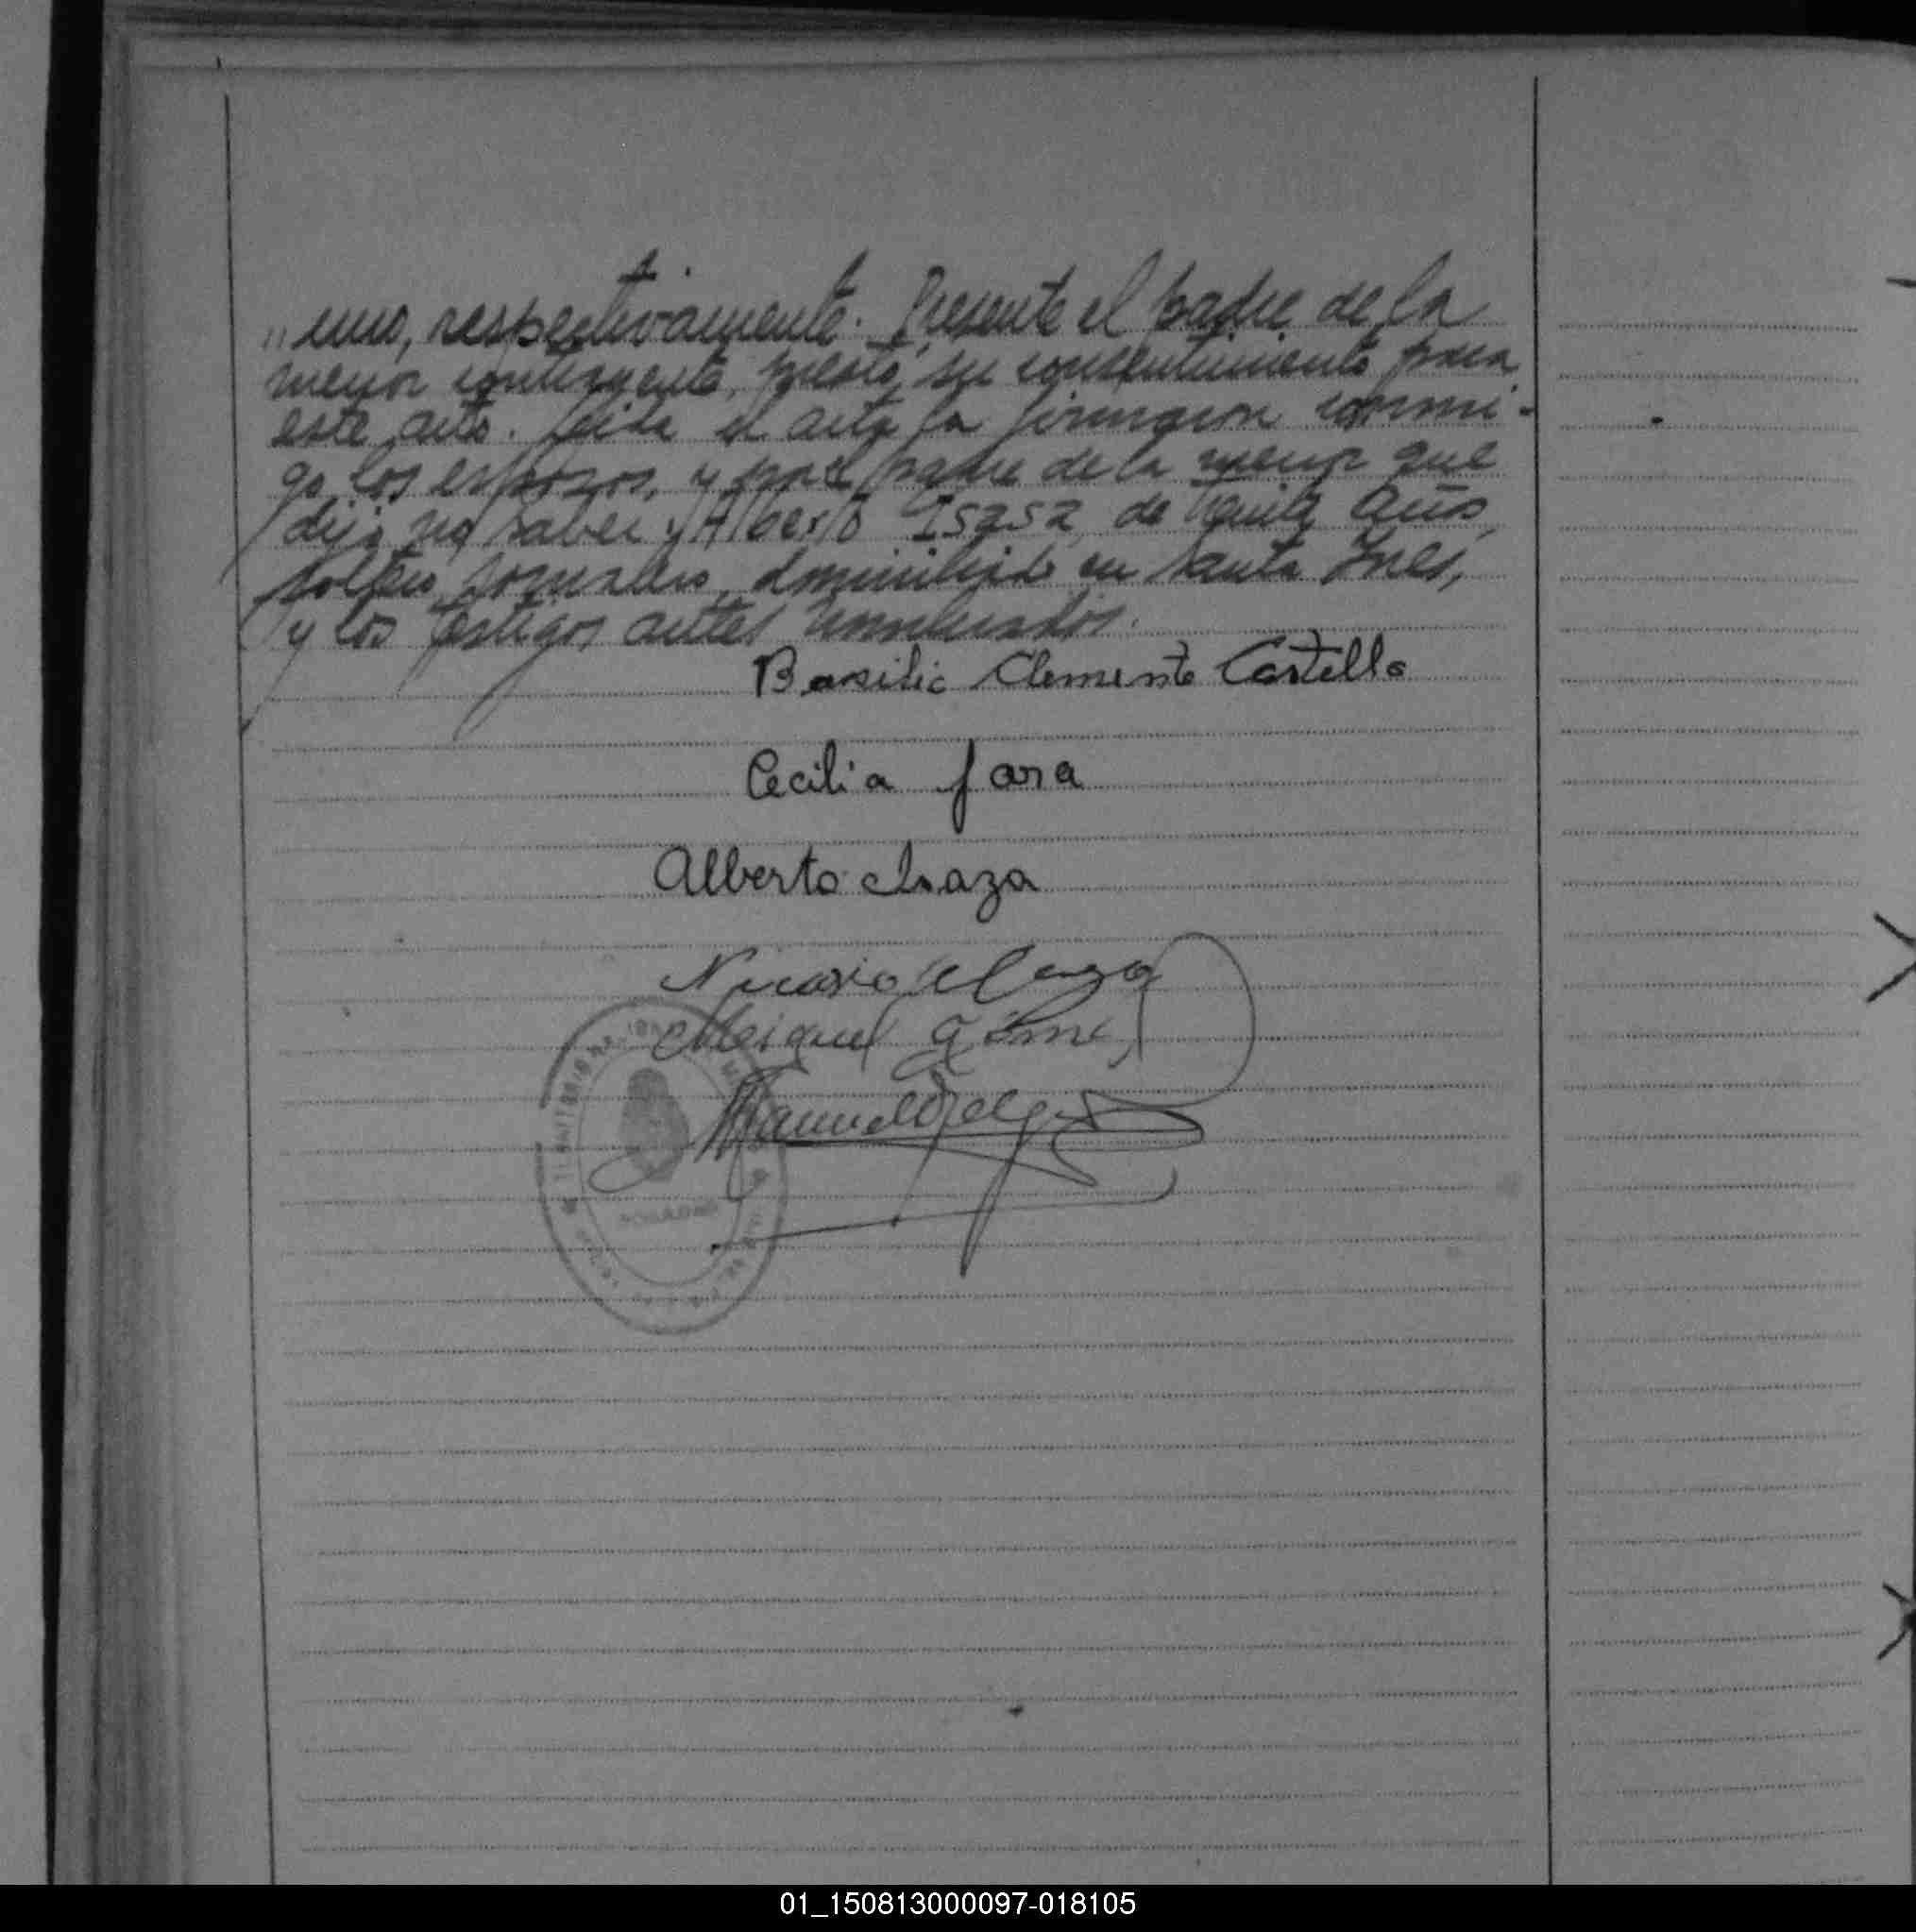 " eros, respectivamente. Presente el padre de la
menor contrayente, prestó su consentimiento para
este acto. Leída el acta la firmaron conmi-
go los esposos, y por el padre de la menor que
dijo no saber, Alberto Isasa, de treinta años,
soltero, jornalero, domiciliado en Santa Inés,
y los testigos antes nombrados.
Basilio Clemente Castello
Cecilia Jara
Alberto Isaza
Nicasio
Miguel Gómez
Manuel
01_150813000097-018105